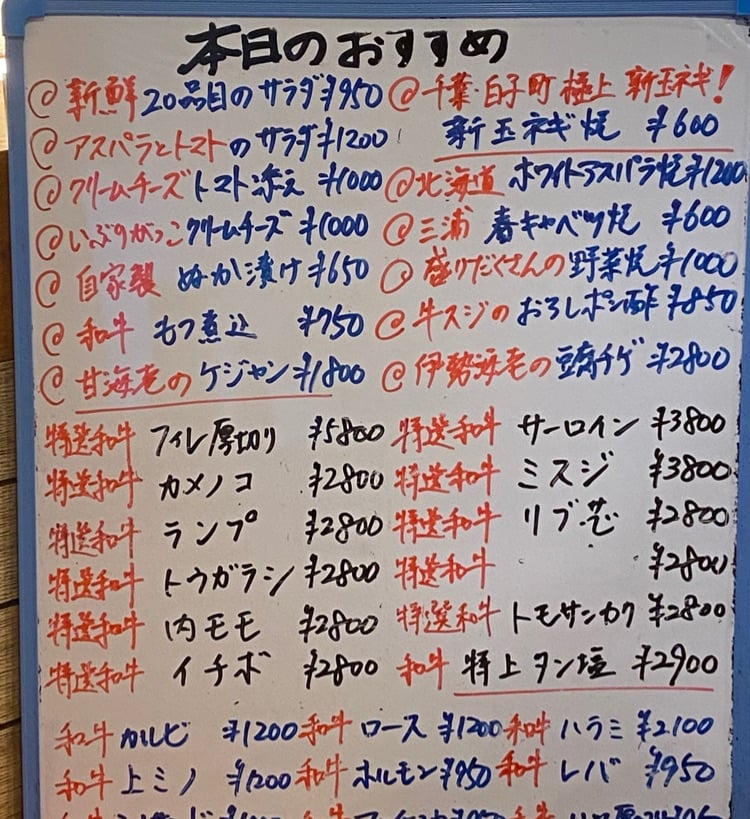 本日のおすすめ
@新鮮20品目のサラダ¥950
@アスパラとトマトのサラダ¥1200
@クリームチーズトマト添え ¥1000
@いぶりがっこクリームチーズ ¥1000
@自家製 ぬか漬け¥650
@和牛 もつ煮込 ¥750
@甘海老のケジャン¥1800
@千葉・白子町 極上 新玉ネギ!
新玉ネギ焼 ¥600
@北海道 ホワイトアスパラ焼¥1200
@三浦 春キャベツ焼 ¥600
@盛りだくさんの野菜焼¥1000
@牛スジのおろしポン酢¥850
@伊勢海老の豆腐チゲ¥2800
特選和牛 フィレ厚切り ¥5800
特選和牛 カメノコ ¥2800
特選和牛 ランプ ¥2800
特選和牛 トウガラシ ¥2800
特選和牛 内モモ ¥2800
特選和牛 イチボ ¥2800
特選和牛 サーロイン ¥3800
特選和牛 ミスジ ¥3800
特選和牛 リブ芯 ¥2800
特選和牛 ¥2800
特選和牛 トモサンカク ¥2800
和牛 特上タン塩 ¥2900
和牛 カルビ ¥1200 和牛 ロース ¥1200 和牛 ハラミ ¥2100
和牛 上ミノ ¥1200 和牛 ホルモン ¥950 和牛 レバ ¥950